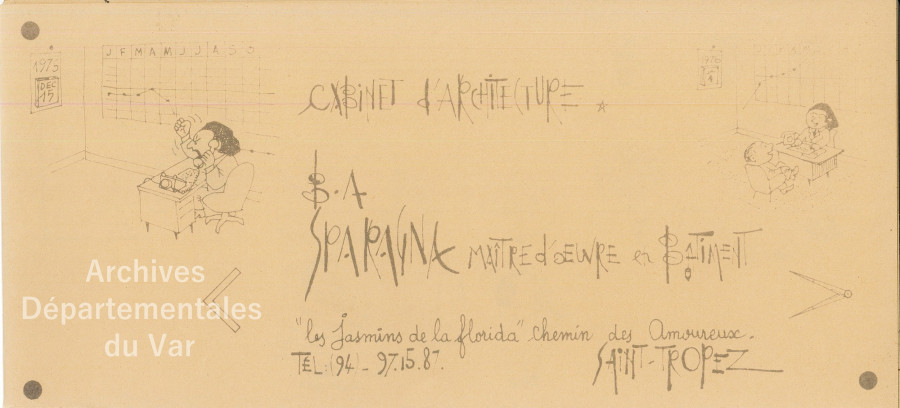 J F M A M J J A S O
1975
DEC
15
CABINET d'ARCHITECTURE
B.A
SPARAYNA MAÎTRE d'oeuvre en BÂTIMENT
"les Jasmins de la florida" chemin des Amoureux.
TEL:(94)_ 97.15.87.
SAINT-TROPEZ
Archives
Départementales
du Var